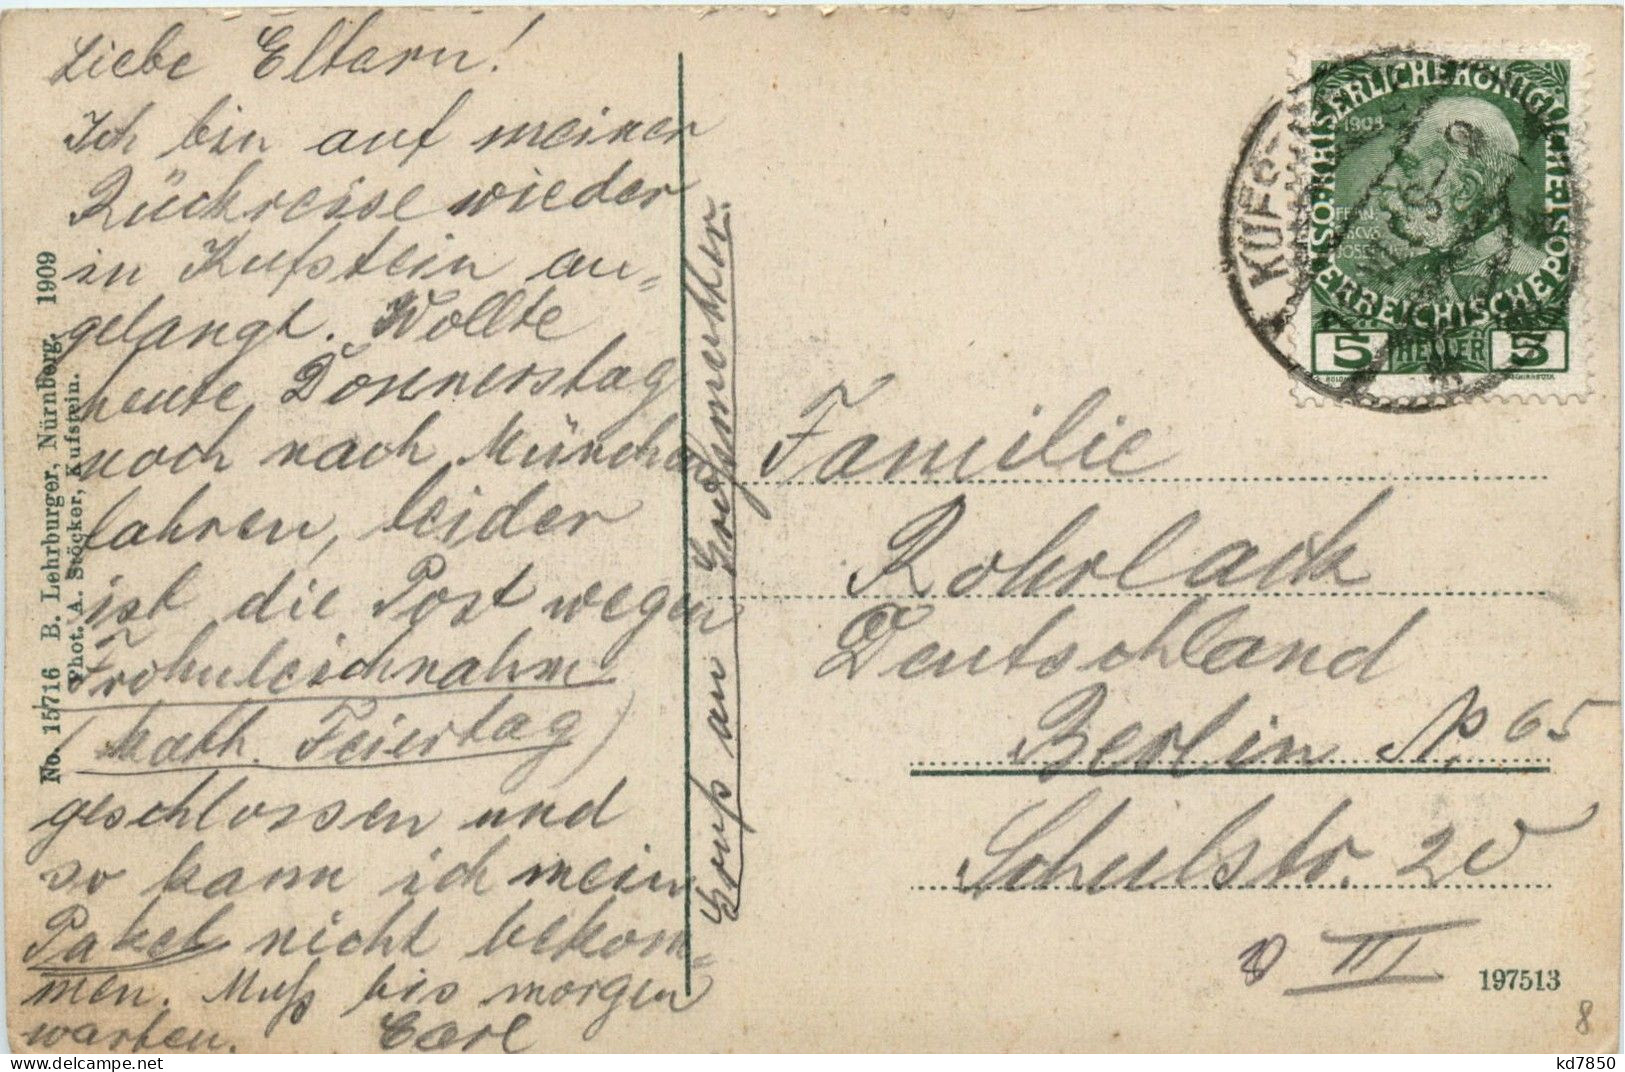 Liebe Eltern!
Ich bin auf meiner
Rückreise wieder
in Kufstein an=
gelangt. Wollte
heute Donnerstag
noch nach München
fahren, leider
ist die Post wegen
Frohnleichnahm
(kath. Feiertag)
geschlossen und
so kann ich mein
Paket nicht bekom=
men. Muß bis morgen
warten. Carl
Gruß an Großmutter.
No. 15716 B. Lehrburger, Nürnberg, 1909
Phot. A. Stöcker, Kufstein.
KAISERLICHE KÖNIGLICHE ÖSTERREICHISCHE POST
1908
FRANZ
JOSEF
5 HELLER 5
KUFS
Familie
Rohrlack
Deutschland
Berlin N, 65
Schulstr. 20
v III
197513
8
kd7850